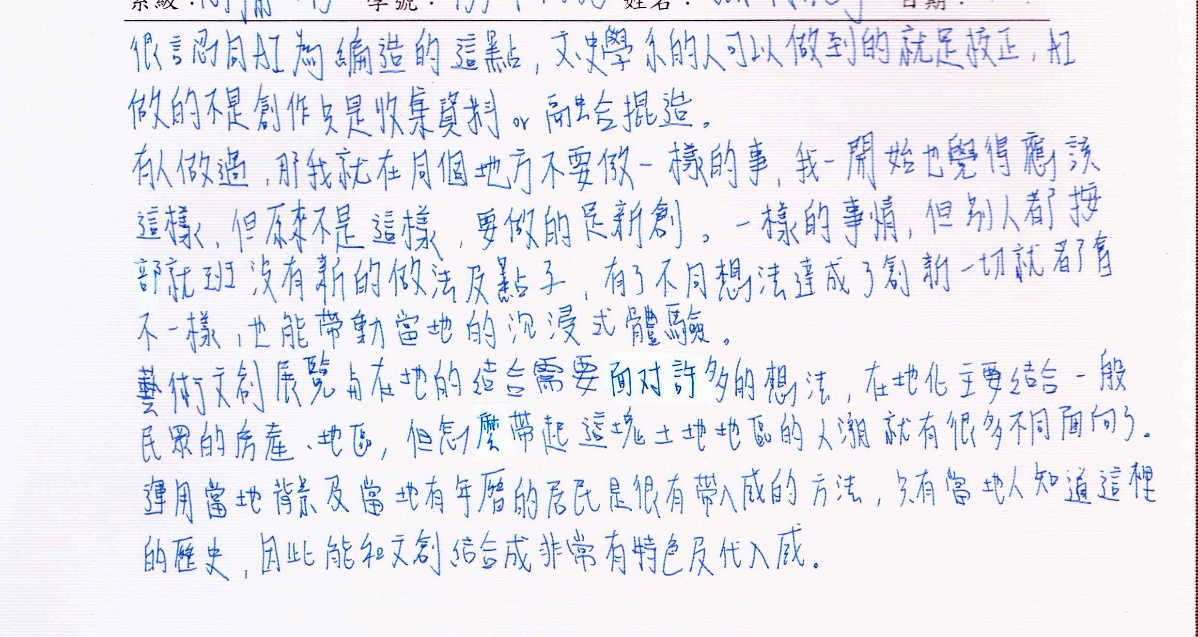 系級： 學號： 姓名： 日期：
很言忍同AI為編造的這點，文史學系的人可以做到的就是校正，AI
做的不是創作只是收集資料or融合捏造。
有人做過，那我就在同個地方不要做一樣的事，我一開始也覺得應該
這樣，但原來不是這樣，要做的是新創。一樣的事情，但別人都按
部就班沒有新的做法及點子，有了不同想法達成了創新一切就都會
不一樣，也能帶動當地的沉浸式體驗。
藝術文創展覽与在地的结合需要面对許多的想法，在地化主要结合一般
民眾的房產、地區，但怎麼帶起這塊土地地區的人潮就有很多不同面向了。
運用當地背景及當地有年曆的居民是很有帶入感的方法，只有當地人知道這裡
的歷史，因此能和文創結合成非常有特色及代入感。